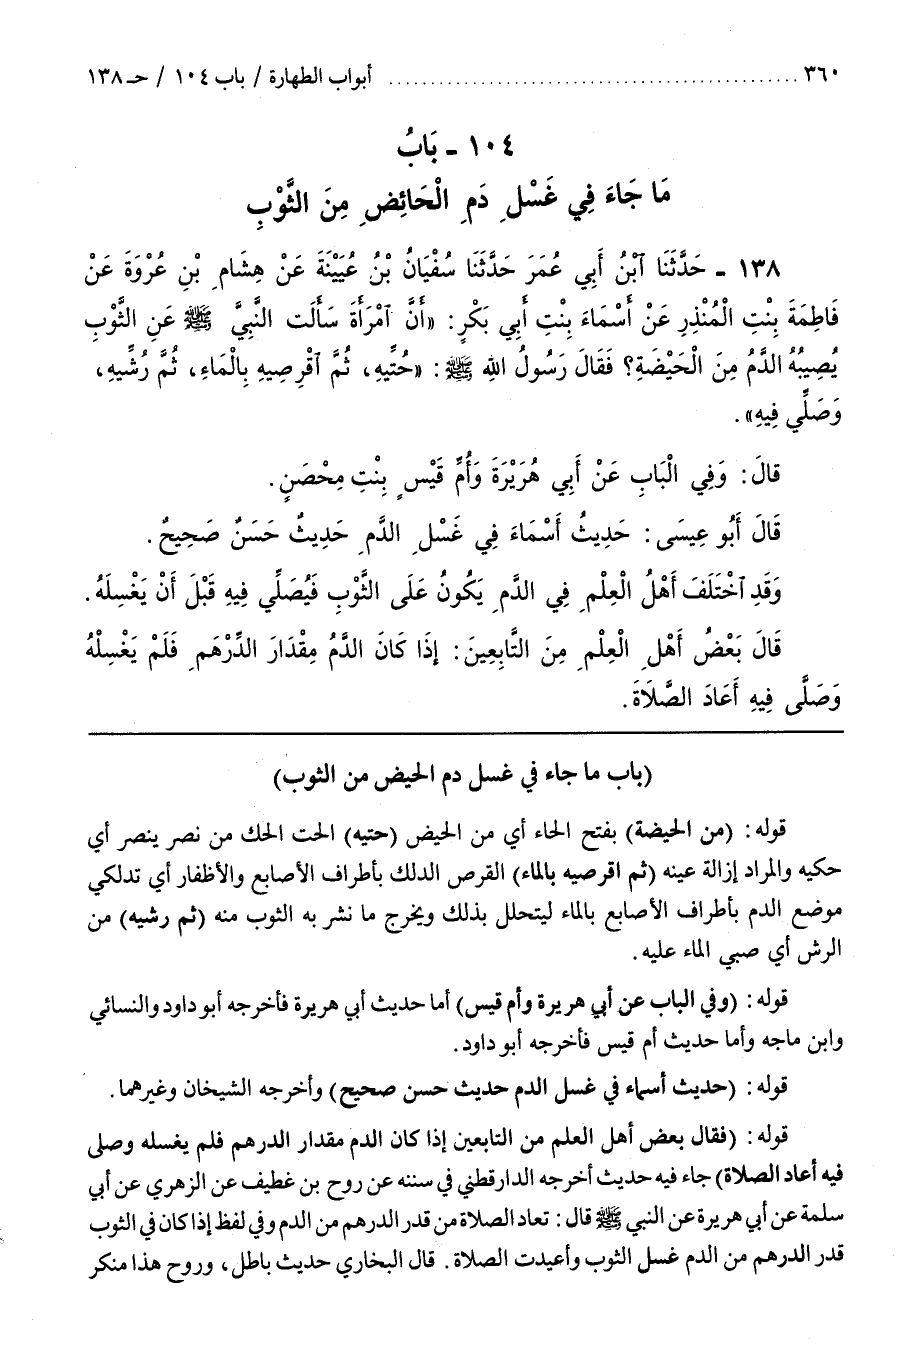 ٣٦٠ ................................................ أبواب الطهارة / باب ١٠٤ / حـ ١٣٨
١٠٤ - بَابُ
مَا جَاءَ فِي غَسْلِ دَمِ الْحَائِضِ مِنَ الثَّوْبِ
١٣٨ - حَدَّثَنَا ٱبْنُ أَبِي عُمَرَ حَدَّثَنَا سُفْيَانُ بْنُ عُيَيْنَةَ عَنْ هِشَامِ بْنِ عُرْوَةَ عَنْ
فَاطِمَةَ بِنْتِ الْمُنْذِرِ عَنْ أَسْمَاءَ بِنْتِ أَبِي بَكْرٍ: «أَنَّ ٱمْرَأَةَ سَأَلَت النَّبِيَّ ﷺ عَنِ الثَّوْبِ
يُصِيبُهُ الدَّمُ مِنَ الْحَيْضَةِ؟ فَقَالَ رَسُولُ اللهِ ﷺ: «حُتِّيهِ، ثُمَّ ٱقْرِصِيهِ بِالْمَاءِ، ثُمَّ رُشِّيهِ،
وَصَلِّي فِيهِ».
قالَ: وَفِي الْبَابِ عَنْ أَبِي هُرَيْرَةَ وَأُمِّ قَيْسٍ بِنْتِ مِحْصَنٍ.
قَالَ أَبُو عِيسَى: حَدِيثُ أَسْمَاءَ فِي غَسْلِ الدَّمِ حَدِيثٌ حَسَنٌ صَحِيحٌ.
وَقَدِ ٱخْتَلَفَ أَهْلُ الْعِلْمِ فِي الدَّمِ يَكُونُ عَلَى الثَّوْبِ فَيُصَلِّي فِيهِ قَبْلَ أَنْ يَغْسِلَهُ.
قَالَ بَعْضُ أَهْلِ الْعِلْمِ مِنَ التَّابِعِينَ: إِذَا كَانَ الدَّمُ مِقْدَارَ الدِّرْهَمِ فَلَمْ يَغْسِلْهُ
وَصَلَّى فِيهِ أَعَادَ الصَّلَاةَ.
(باب ما جاء في غسل دم الحيض من الثوب)
قوله: (من الحيضة) بفتح الحاء أي من الحيض (حتيه) الحت الحك من نصر ينصر أي
حكيه والمراد إزالة عينه (ثم اقرصيه بالماء) القرص الدلك بأطراف الأصابع والأظفار أي تدلكي
موضع الدم بأطراف الأصابع بالماء ليتحلل بذلك ويخرج ما نشر به الثوب منه (ثم رشيه) من
الرش أي صبي الماء عليه.
قوله: (وفي الباب عن أبي هريرة وأم قيس) أما حديث أبي هريرة فأخرجه أبو داود والنسائي
وابن ماجه وأما حديث أم قيس فأخرجه أبو داود.
قوله: (حديث أسماء في غسل الدم حديث حسن صحيح) وأخرجه الشيخان وغيرهما.
قوله: (فقال بعض أهل العلم من التابعين إذا كان الدم مقدار الدرهم فلم يغسله وصلى
فيه أعاد الصلاة) جاء فيه حديث أخرجه الدارقطني في سننه عن روح بن غطيف عن الزهري عن أبي
سلمة عن أبي هريرة عن النبي ﷺ قال: تعاد الصلاة من قدر الدرهم من الدم وفي لفظ إذا كان في الثوب
قدر الدرهم من الدم غسل الثوب وأعيدت الصلاة. قال البخاري حديث باطل، وروح هذا منكر